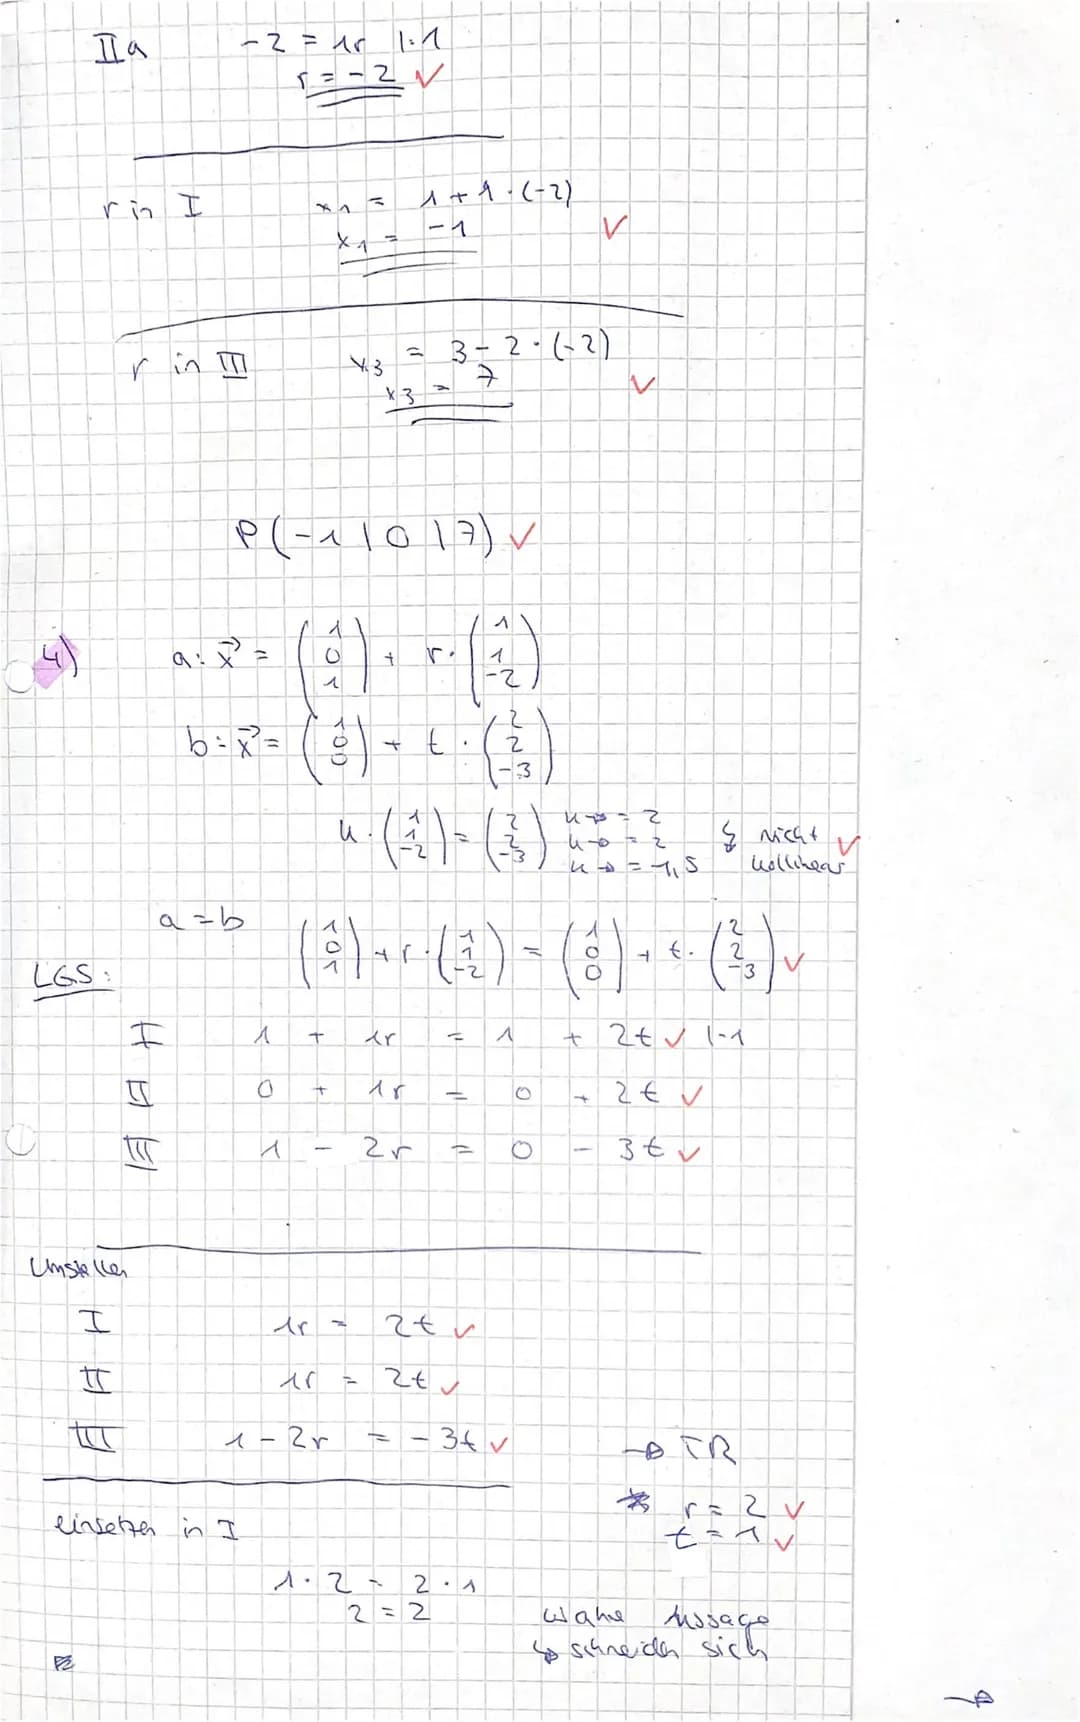 IIa -2 = 1r |:1
r = -2 ✓
r in I x₁ = 1+1·(-2)
x₁ = -1 ✓
r in III x₃ = 3-2·(-2)
x₃ = 7 ✓
P(-1|0|7) ✓
4) a: x⃗ = (1 0 1) + r·(1 1 -2)
b: x⃗ = (1 0 0) + t·(2 2 -3)
u·(1 1 -2) = (2 2 -3) u→ = 2
u→ = 2
u→ = 1,5
↯ nicht kollinear ✓
a = b (1 0 1) + r·(1 1 -2) = (1 0 0) + t·(2 2 -3) ✓
LGS:
I 1 + 1r = 1 + 2t ✓ |-1
II 0 + 1r = 0 + 2t ✓
III 1 - 2r = 0 - 3t ✓
Umstellen
I 1r = 2t ✓
II 1r = 2t ✓
III 1-2r = -3t ✓ → TR
r = 2 ✓
t = 1 ✓
einsetzen in I
1·2 = 2·1
2 = 2
wahre Aussage
↳ schneiden sich
→